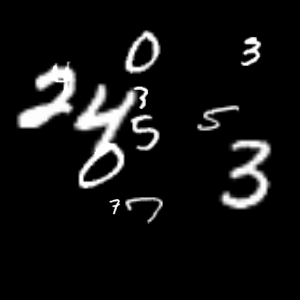 0 3
2 4 3
5 5
0 3
7 7